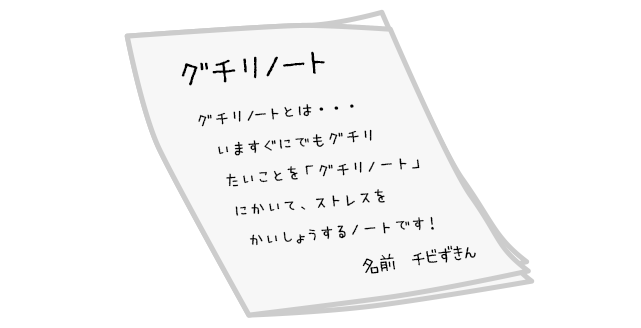 グチリノート
グチリノートとは・・・
いますぐにでもグチリ
たいことを「グチリノート」
にかいて、ストレスを
かいしょうするノートです！
名前　チビずきん